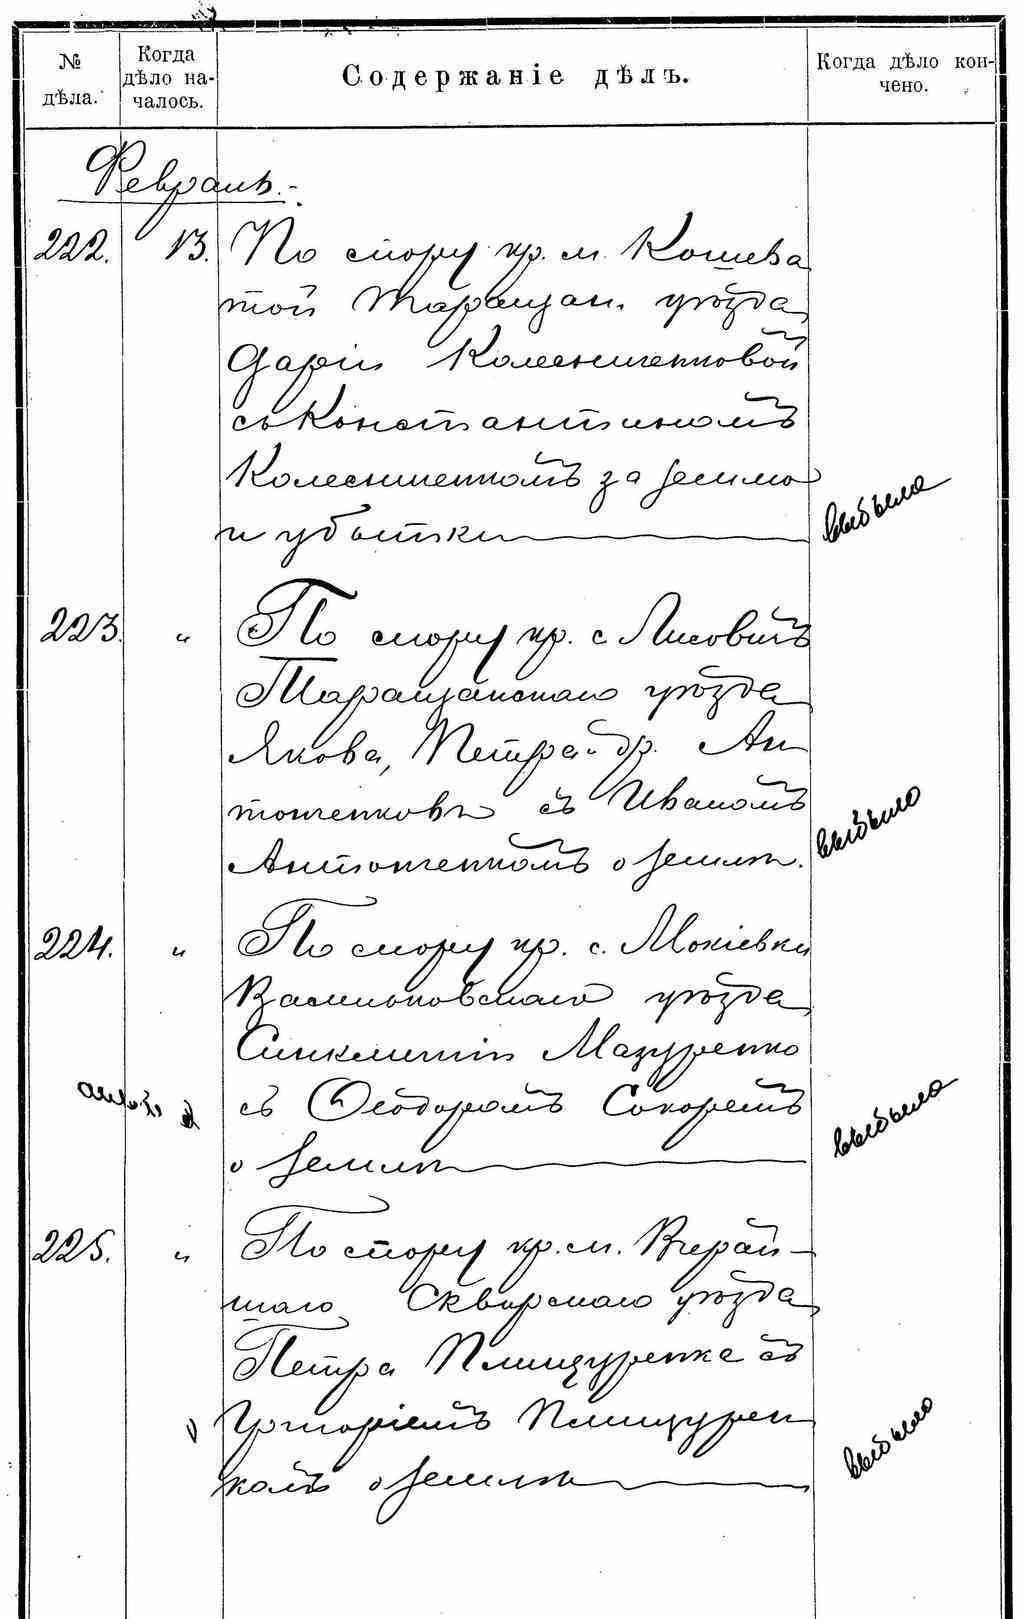 № дѣла.
Когда дѣло на-
чалось.
Содержаніе дѣлъ.
Когда дѣло кон-
чено.
Февраль.
222. 13. По спору кр. м. Кошева
той Таращан. уѣзда
Даріи Колесниченковой
съ Константиномъ
Колесниченкомъ за землю
и убытки
выбыла
223. " По спору кр. с Лисовичъ
Таращанскаго уѣзда
Якова, Петра и др. Ан
тоненковъ съ Иваномъ
Антоненкомъ о землѣ.
выбыло
224. " По спору кр. с. Мокіевки
Васильковскаго уѣзда
Синклитіи Мазуренко
съ Ѳеодоромъ Сокоремъ
о землѣ
выбыло
225. " По спору кр. м. Вчерай-
шаго Сквирскаго уѣзда
Петра Плищуренка съ
Григоріемъ Плищурен
комъ о землѣ
выбыло